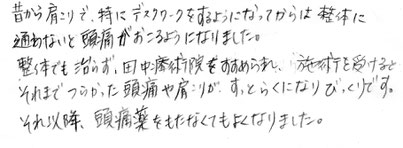 昔から肩こりで、特にデスクワークをするようになってからは整体に
通わないと頭痛がおこるようになりました。
整体でも治らず、田中療術院をすすめられ、施術を受けると
それまでつらかった頭痛や肩こりが、すっとらくになりびっくりです。
それ以降、頭痛薬をもたなくてもよくなりました。